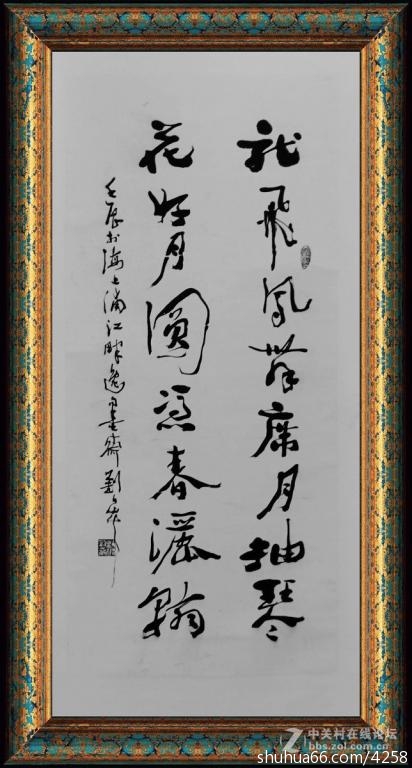 龍飛鳳舞席月抽琴
花好月圓憑春灑翰
壬辰於海上浦江畔逸墨齋劉
Z 中关村在线论坛
bbs.zol.com.cn
shuhua66.com/4258